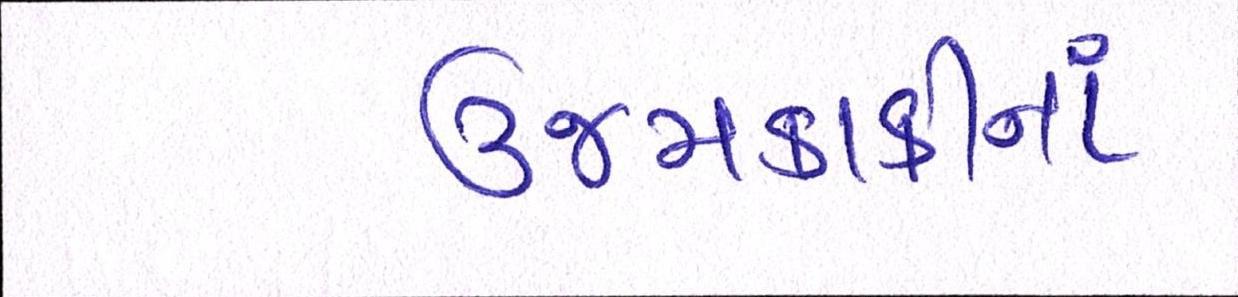 ઉજમકાકીનાં